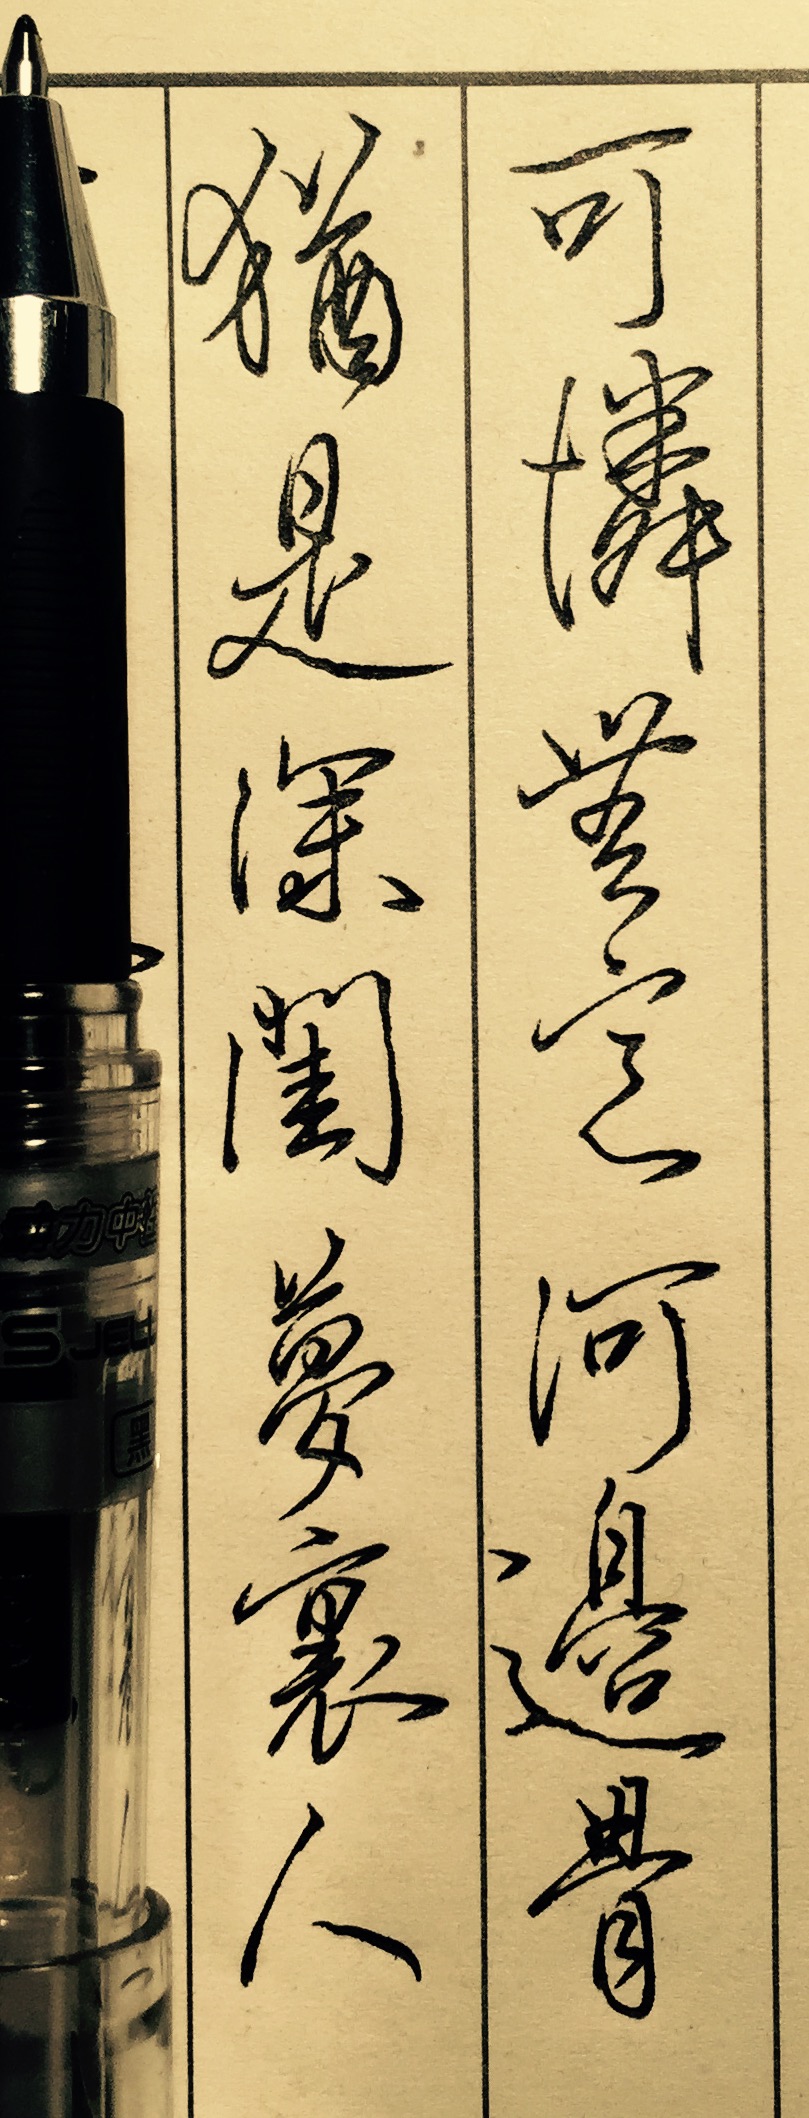 可憐無定河邊骨
猶是深閨夢裏人
力中
S JELL
黑